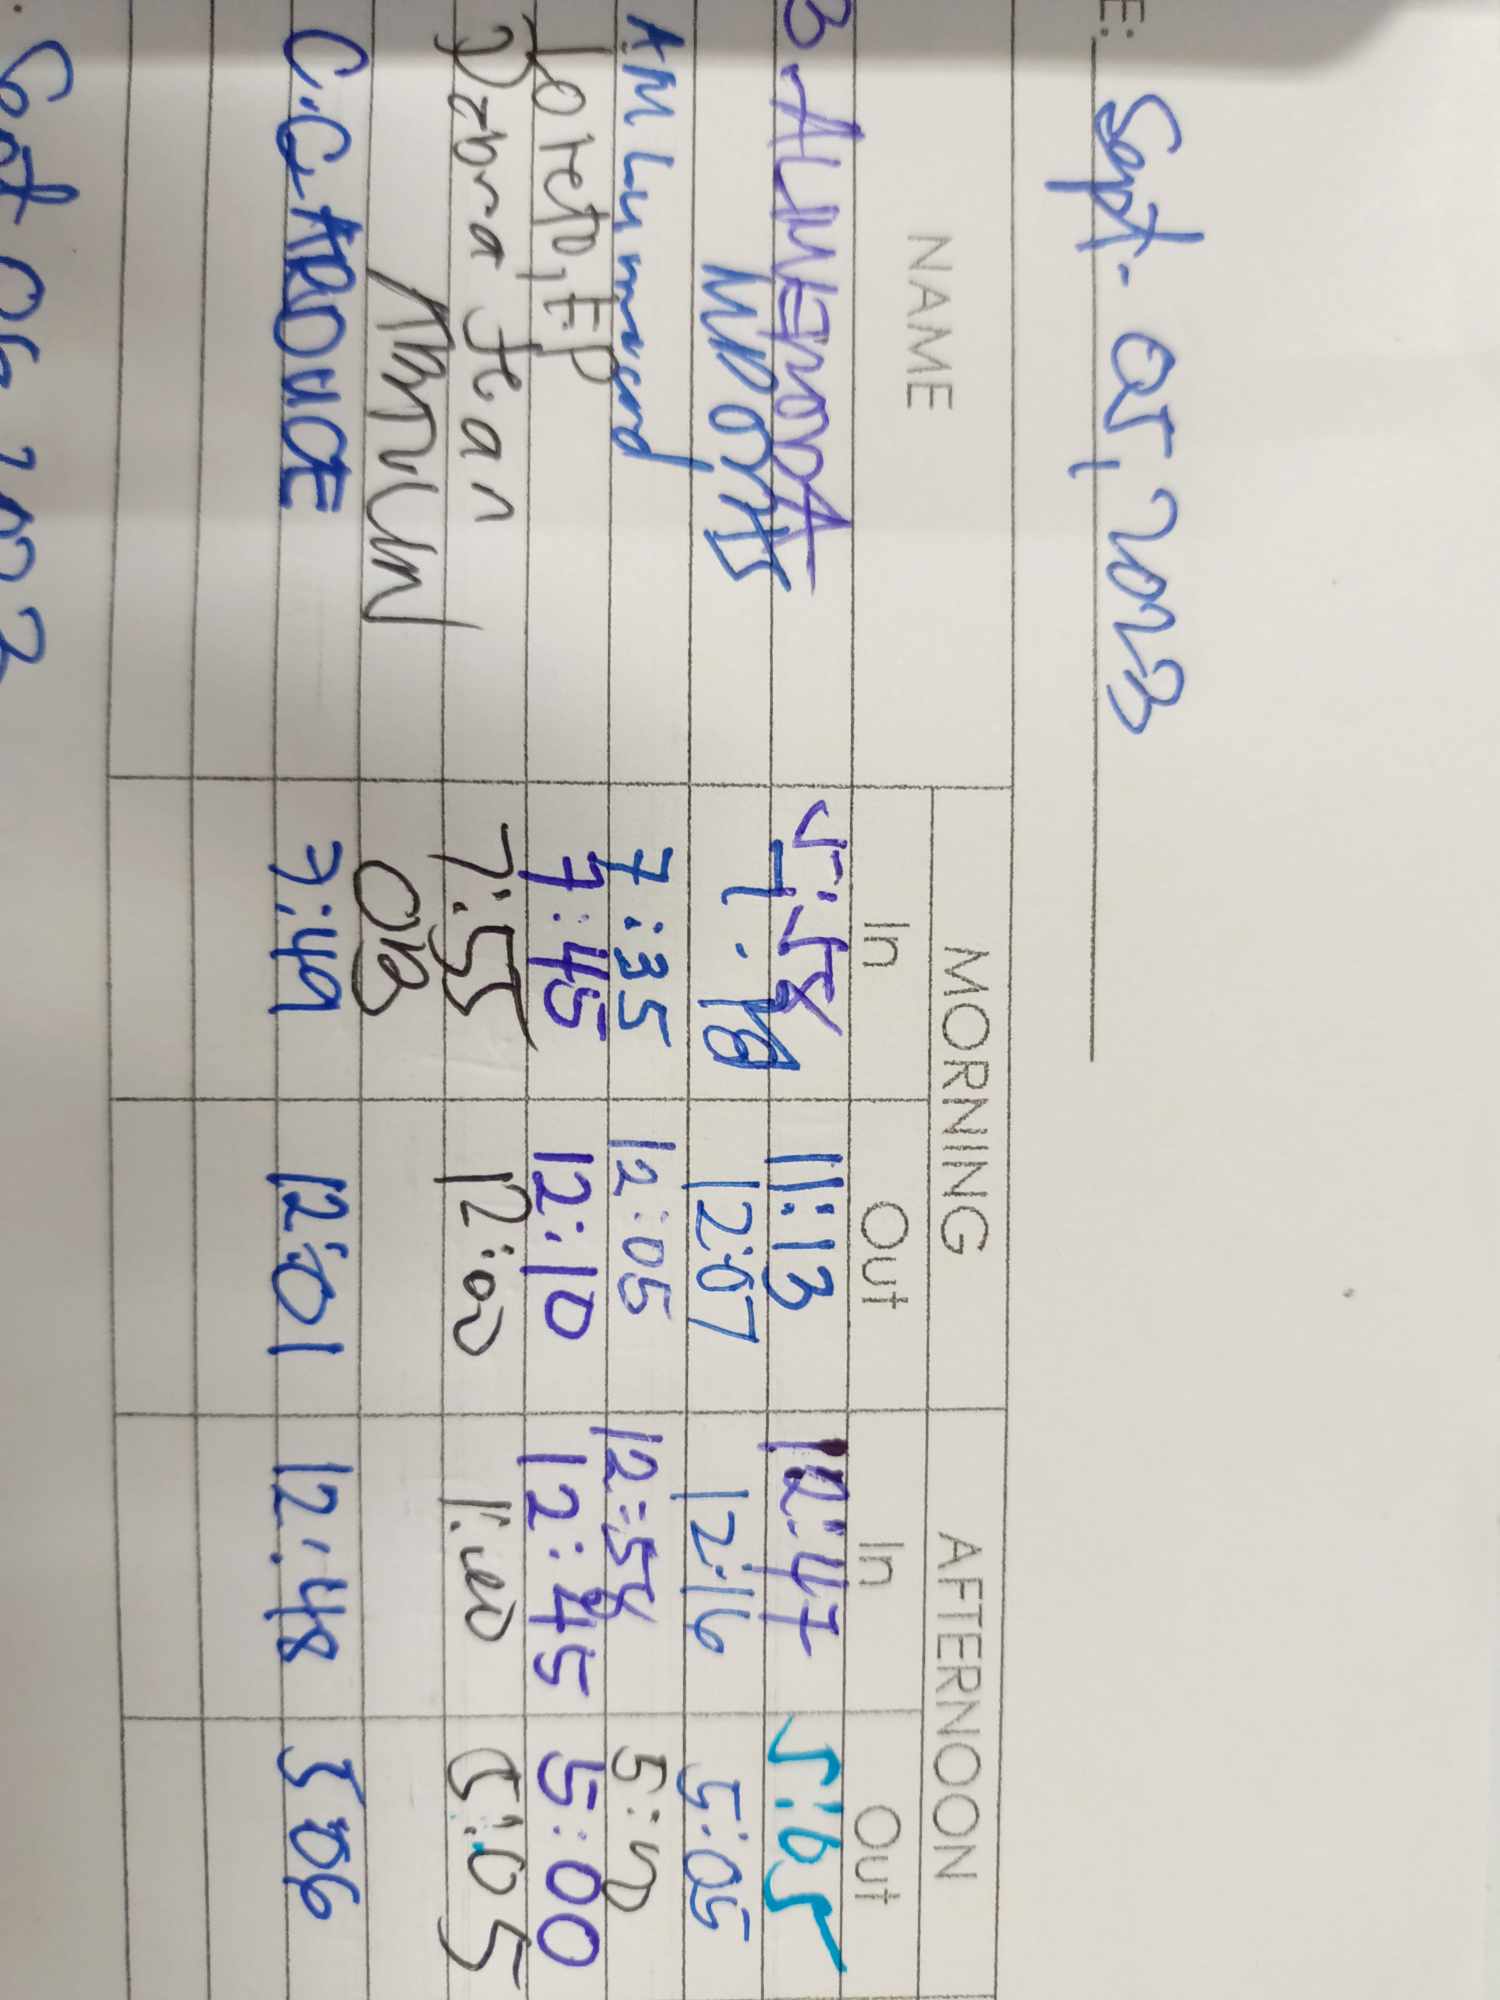 E: Sept. 05, 2023
NAME MORNING AFTERNOON
In Out In Out
B. ALIMENODA 5:58 11:13 12:47 5:05
12:07 12:16 5:05
AM Lumacad 7:35 12:05 12:58 5:00
Loreto, EP 7:45 12:10 12:45 5:00
Dabra Jean 7:55 12:00 1:00 5:05
OB
C.G. ARDUCE 7:49 12:01 12:48 5:06
Sept 06, 2023